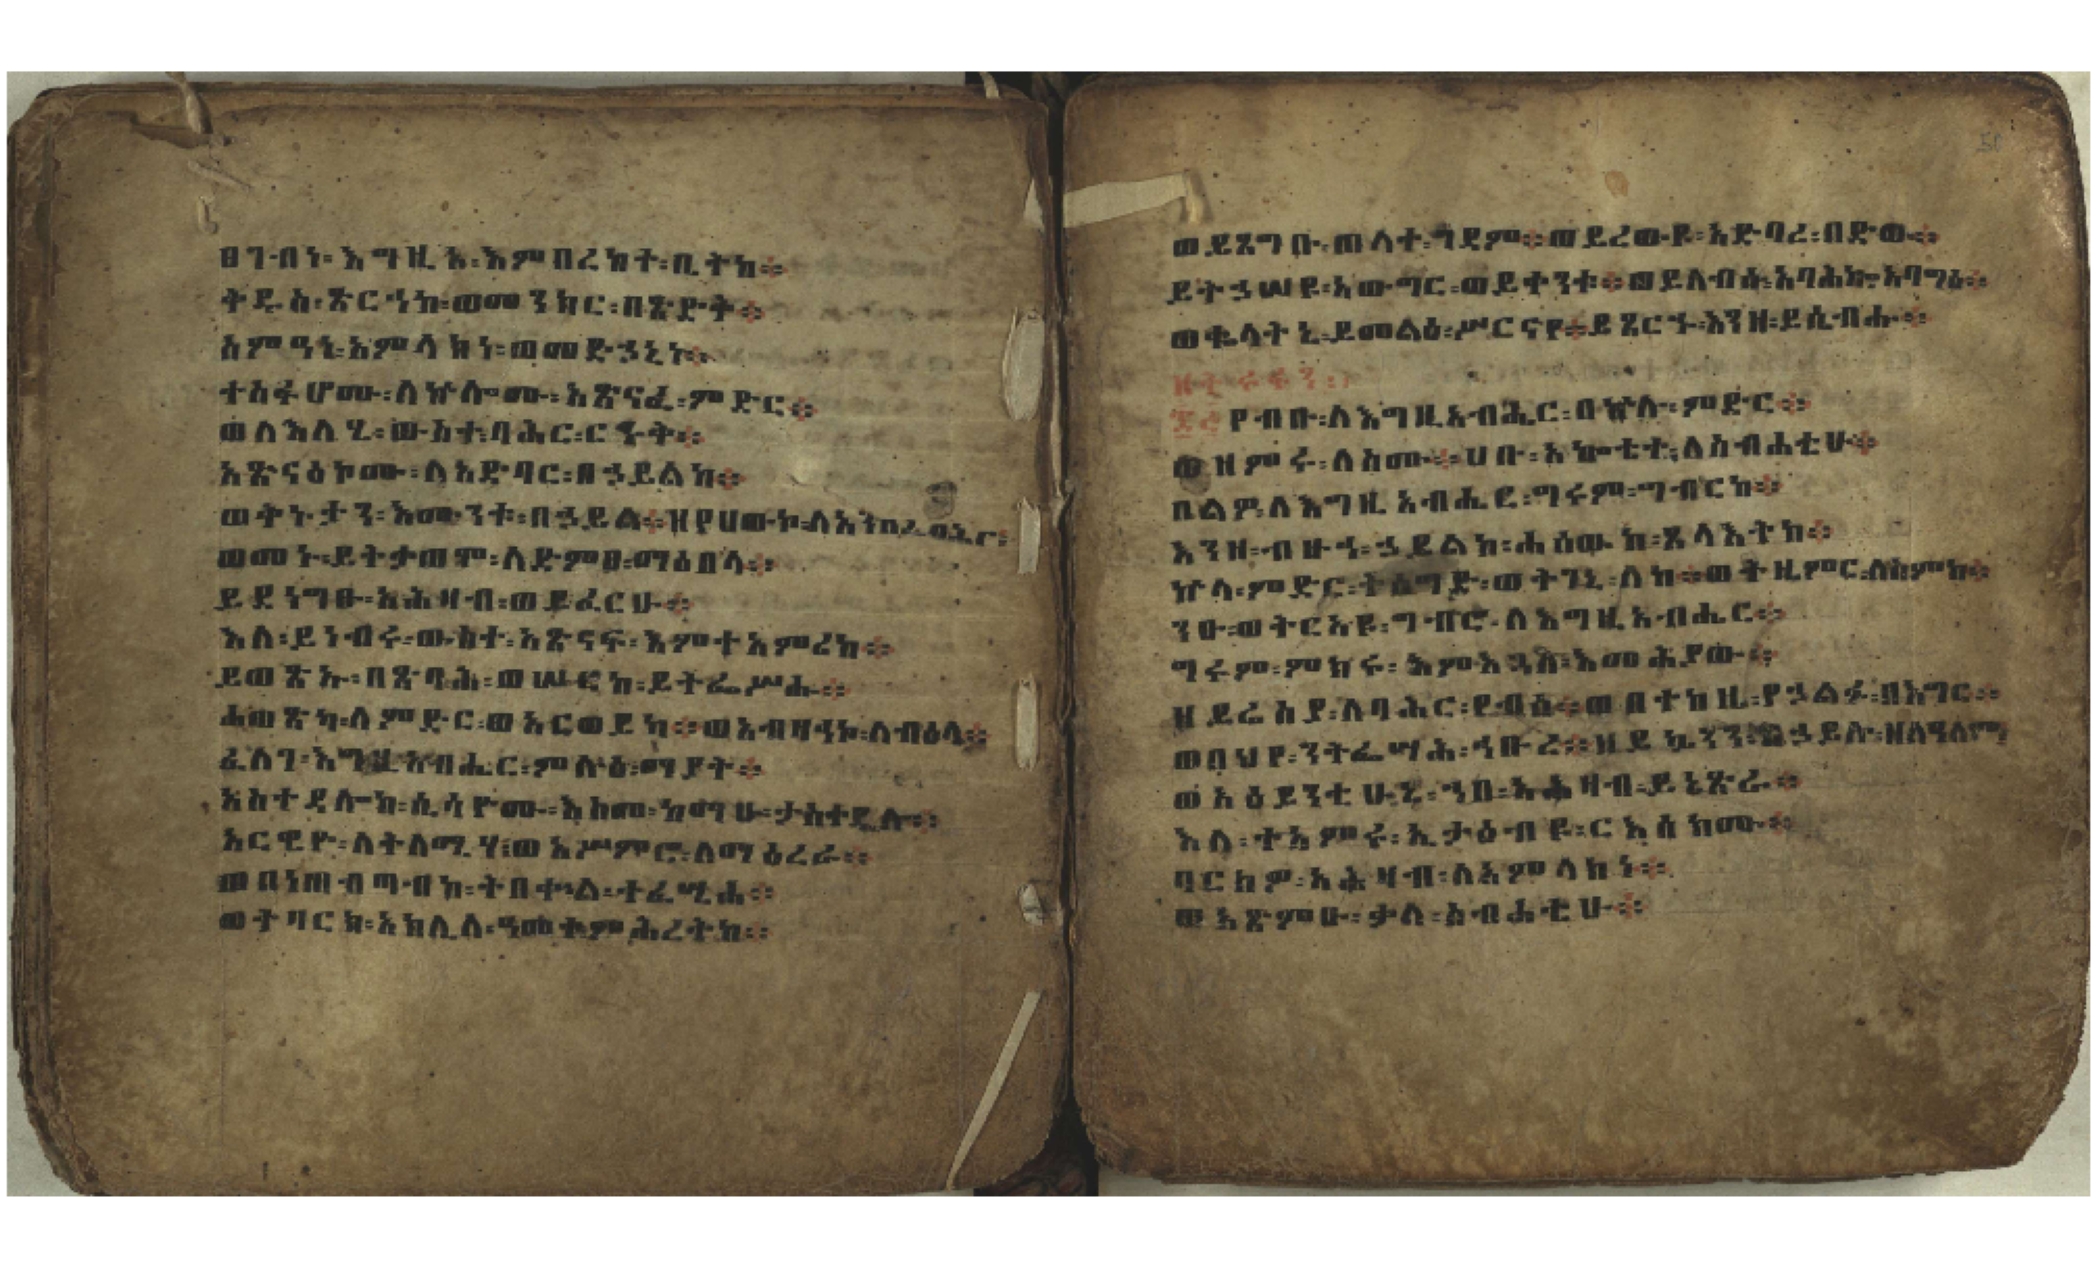 ፀገብነ፡ እግዚኦ፡ እምበረከተ፡ ቤትከ።
ቅዱስ፡ ጽርሕከ፡ ወመንክር፡ በጽድቅ።
ስምዓኒ፡ አምላክነ፡ ወመድኃኒነ።
ተስፋሆሙ፡ ለኵሎሙ፡ አጽናፈ፡ ምድር።
ወለእለሂ፡ ውስተ፡ ባሕር፡ ርኁቅ።
አጽናዕኮሙ፡ ለአድባር፡ በኃይልከ።
ወቅኑታን፡ እሙንቱ፡ በኃይል። ዘየሀውኮ፡
ወመኑ፡ ይትቃወሞ፡ ለድምፀ፡ ማዕበላ።
ይደነግፁ፡ አሕዛብ፡ ወይፈርሁ።
እለ፡ ይነብሩ፡ ውስተ፡ አጽናፍ፡ እምተአምረከ።
ይወጽኡ፡ በጽባሕ፡ ወሠርከ፡ ይትፌሥሑ።
ሐወጽካ፡ ለምድር፡ ወአርወይካ። ወአብዛኅኮ፡ ለብዕላ።
ፈለገ፡ እግዚአብሔር፡ ምሉዕ፡ ማያት።
አስተዳሎከ፡ ሲሳዮሙ፡ እስመ፡ ከማሁ፡ ታስተዴሉ።
አርዊዮ፡ ለትለሚሃ፡ ወአሥምሮ፡ ለማዕረራ።
ወበነጠብጣብከ፡ ትበቍል፡ ተፈሢሓ።
ወትባርክ፡ አክሊለ፡ ዓመተ፡ ምሕረትከ።
ወይጸግቡ፡ ጠላተ፡ ገዳም። ወይረውዩ፡ አድባረ፡ በድው።
ይትኃሠዩ፡ አውግር፡ ወይቀንቱ። ወይለብሱ፡ አባሕኰ፡ አባግዕ።
ወቈላትኒ፡ ይመልዕ፡ ሥርናየ። ይጸርኁ፡ እንዘ፡ ይሴብሑ።
የብቡ፡ ለእግዚአብሔር፡ በኵሉ፡ ምድር።
ወዘምሩ፡ ለስሙ። ሀቡ፡ አኰቴተ፡ ለስብሐቲሁ።
በልዎ፡ ለእግዚአብሔር፡ ግሩም፡ ግብርከ።
እንዘ፡ ብዙኅ፡ ኃይልከ፡ ሐሰዉከ፡ ጸላእትከ።
ኵላ፡ ምድር፡ ትሰግድ፡ ወትገኒ፡ ለከ። ወትዜምር፡ ለስምከ።
ንዑ፡ ወትርአዩ፡ ግብሮ፡ ለእግዚአብሔር።
ግሩም፡ ምክሩ፡ እምእጓለ፡ እመሕያው።
ዘይሬስያ፡ ለባሕር፡ የብሰ። ወበተከዚ፡ የኃልፉ፡ በእግር።
ወበህየ፡ ንትፌሣሕ፡ ኅቡረ። ዘይኴንን፡ በኃይሉ፡ ዘለዓለም
ወአዕይንቲሁኒ፡ ኀበ፡ አሕዛብ፡ ይኔጽራ።
እለ፡ ተአምሩ፡ ኢታዕብዩ፡ ርእሰክሙ።
ባርክዎ፡ አሕዛብ፡ ለአምላክነ።
ወአጽምዑ፡ ቃለ፡ ስብሐቲሁ።